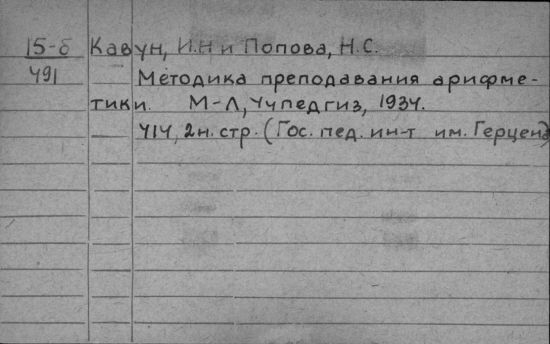 15-б Кавун, И.Н и Попова, Н.С.
491 Методика преподавания арифме-
тики. М-Л, Учпедгиз, 1934.
414, 2н. стр. (Гос. пед. ин-т им. Герцена)